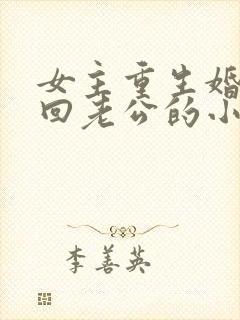 女主重生婚
回老公的小
李善英